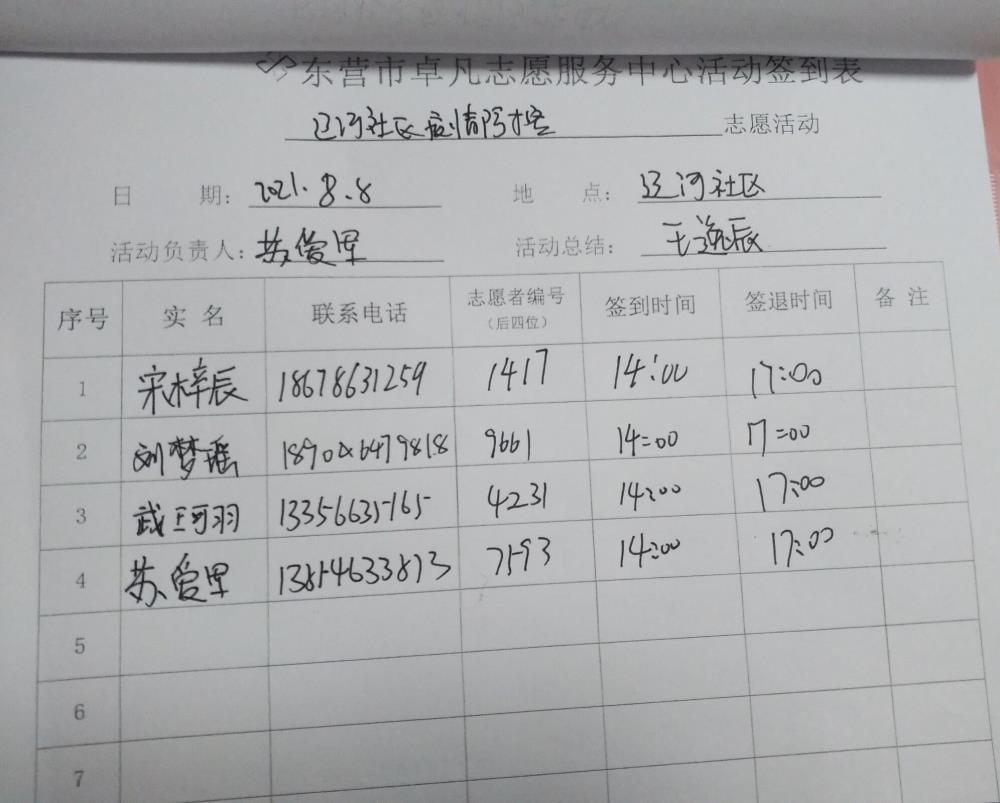 东营市卓凡志愿服务中心活动签到表
辽河社区疫情防控 志愿活动
日 期: 2021.8.8 地 点: 辽河社区
活动负责人: 苏爱军 活动总结: 王逸辰
序号 实 名 联系电话 志愿者编号 (后四位) 签到时间 签退时间 备 注
1 宋梓辰 18678631259 1417 14:00 17:00
2 刘梦瑶 9661 14:00 17:00
3 武珂羽 13356635165 4231 14:00 17:00
4 苏爱军 13854633873 7593 14:00 17:00
5
6
7